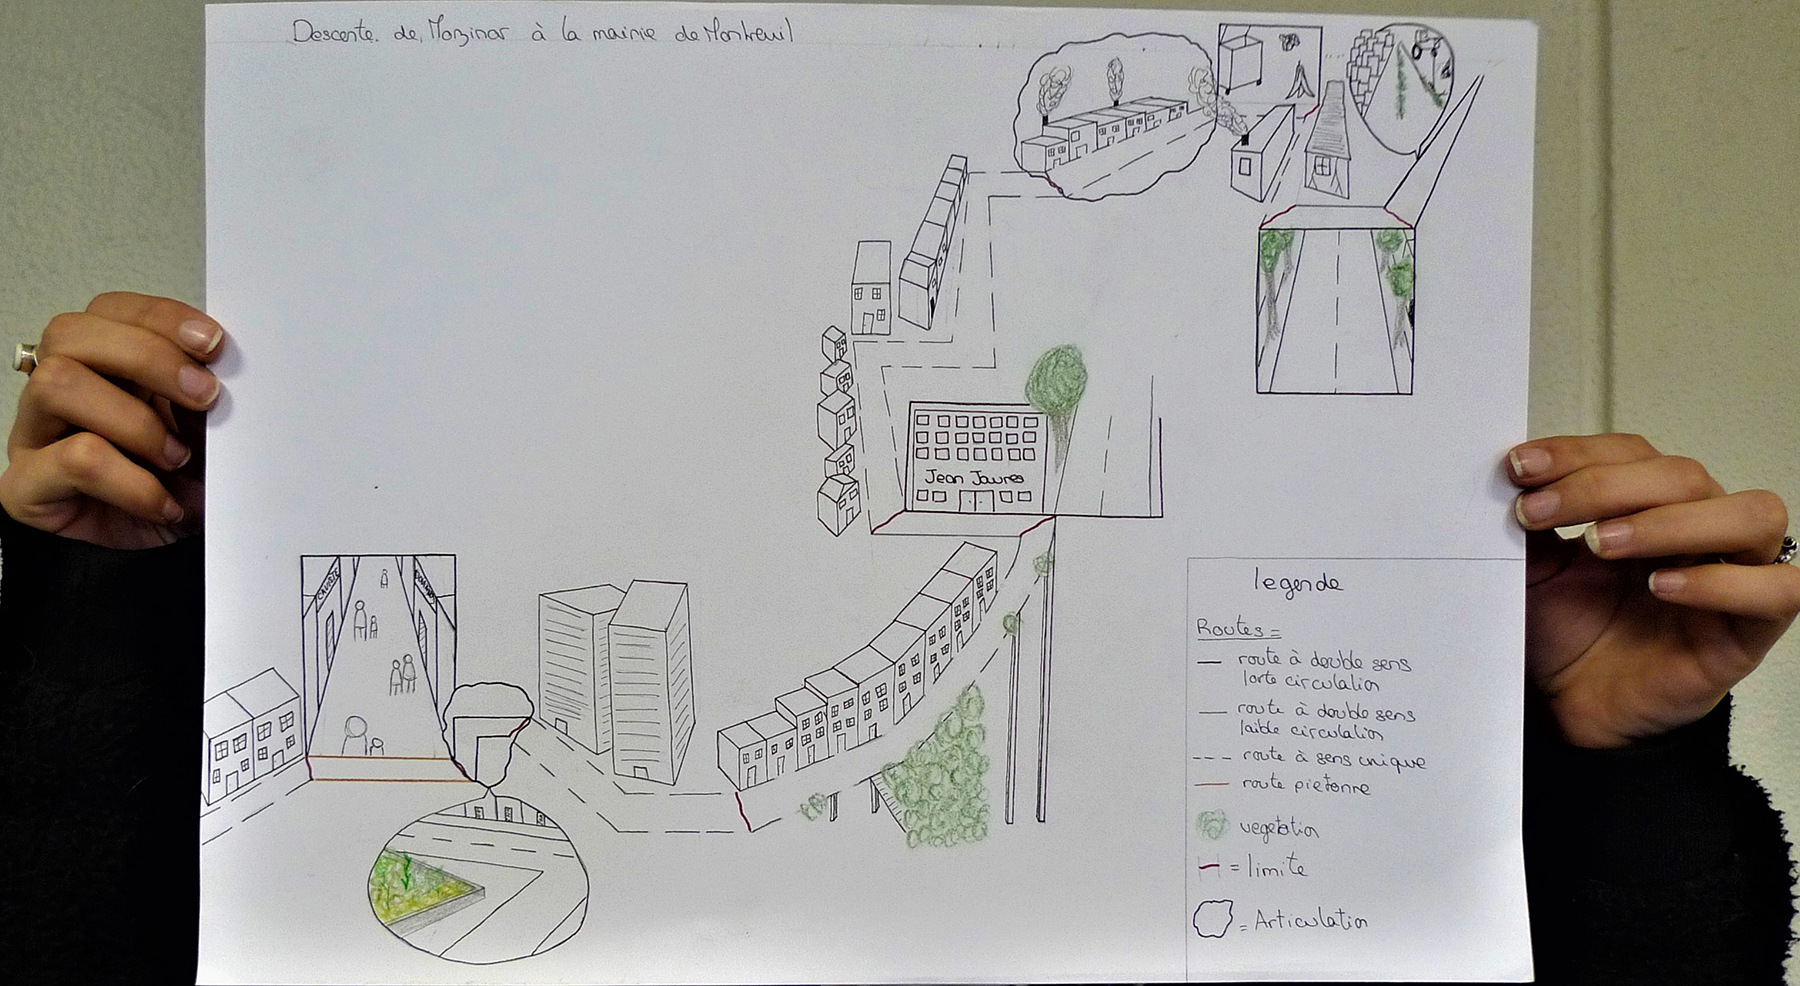 Descente de Mozinor à la mairie de Montreuil
Jean Jaures
legende
Routes =
route à double sens
forte circulation
route à double sens
faible circulation
route à sens unique
route pietonne
vegetation
= limite
= Articulation